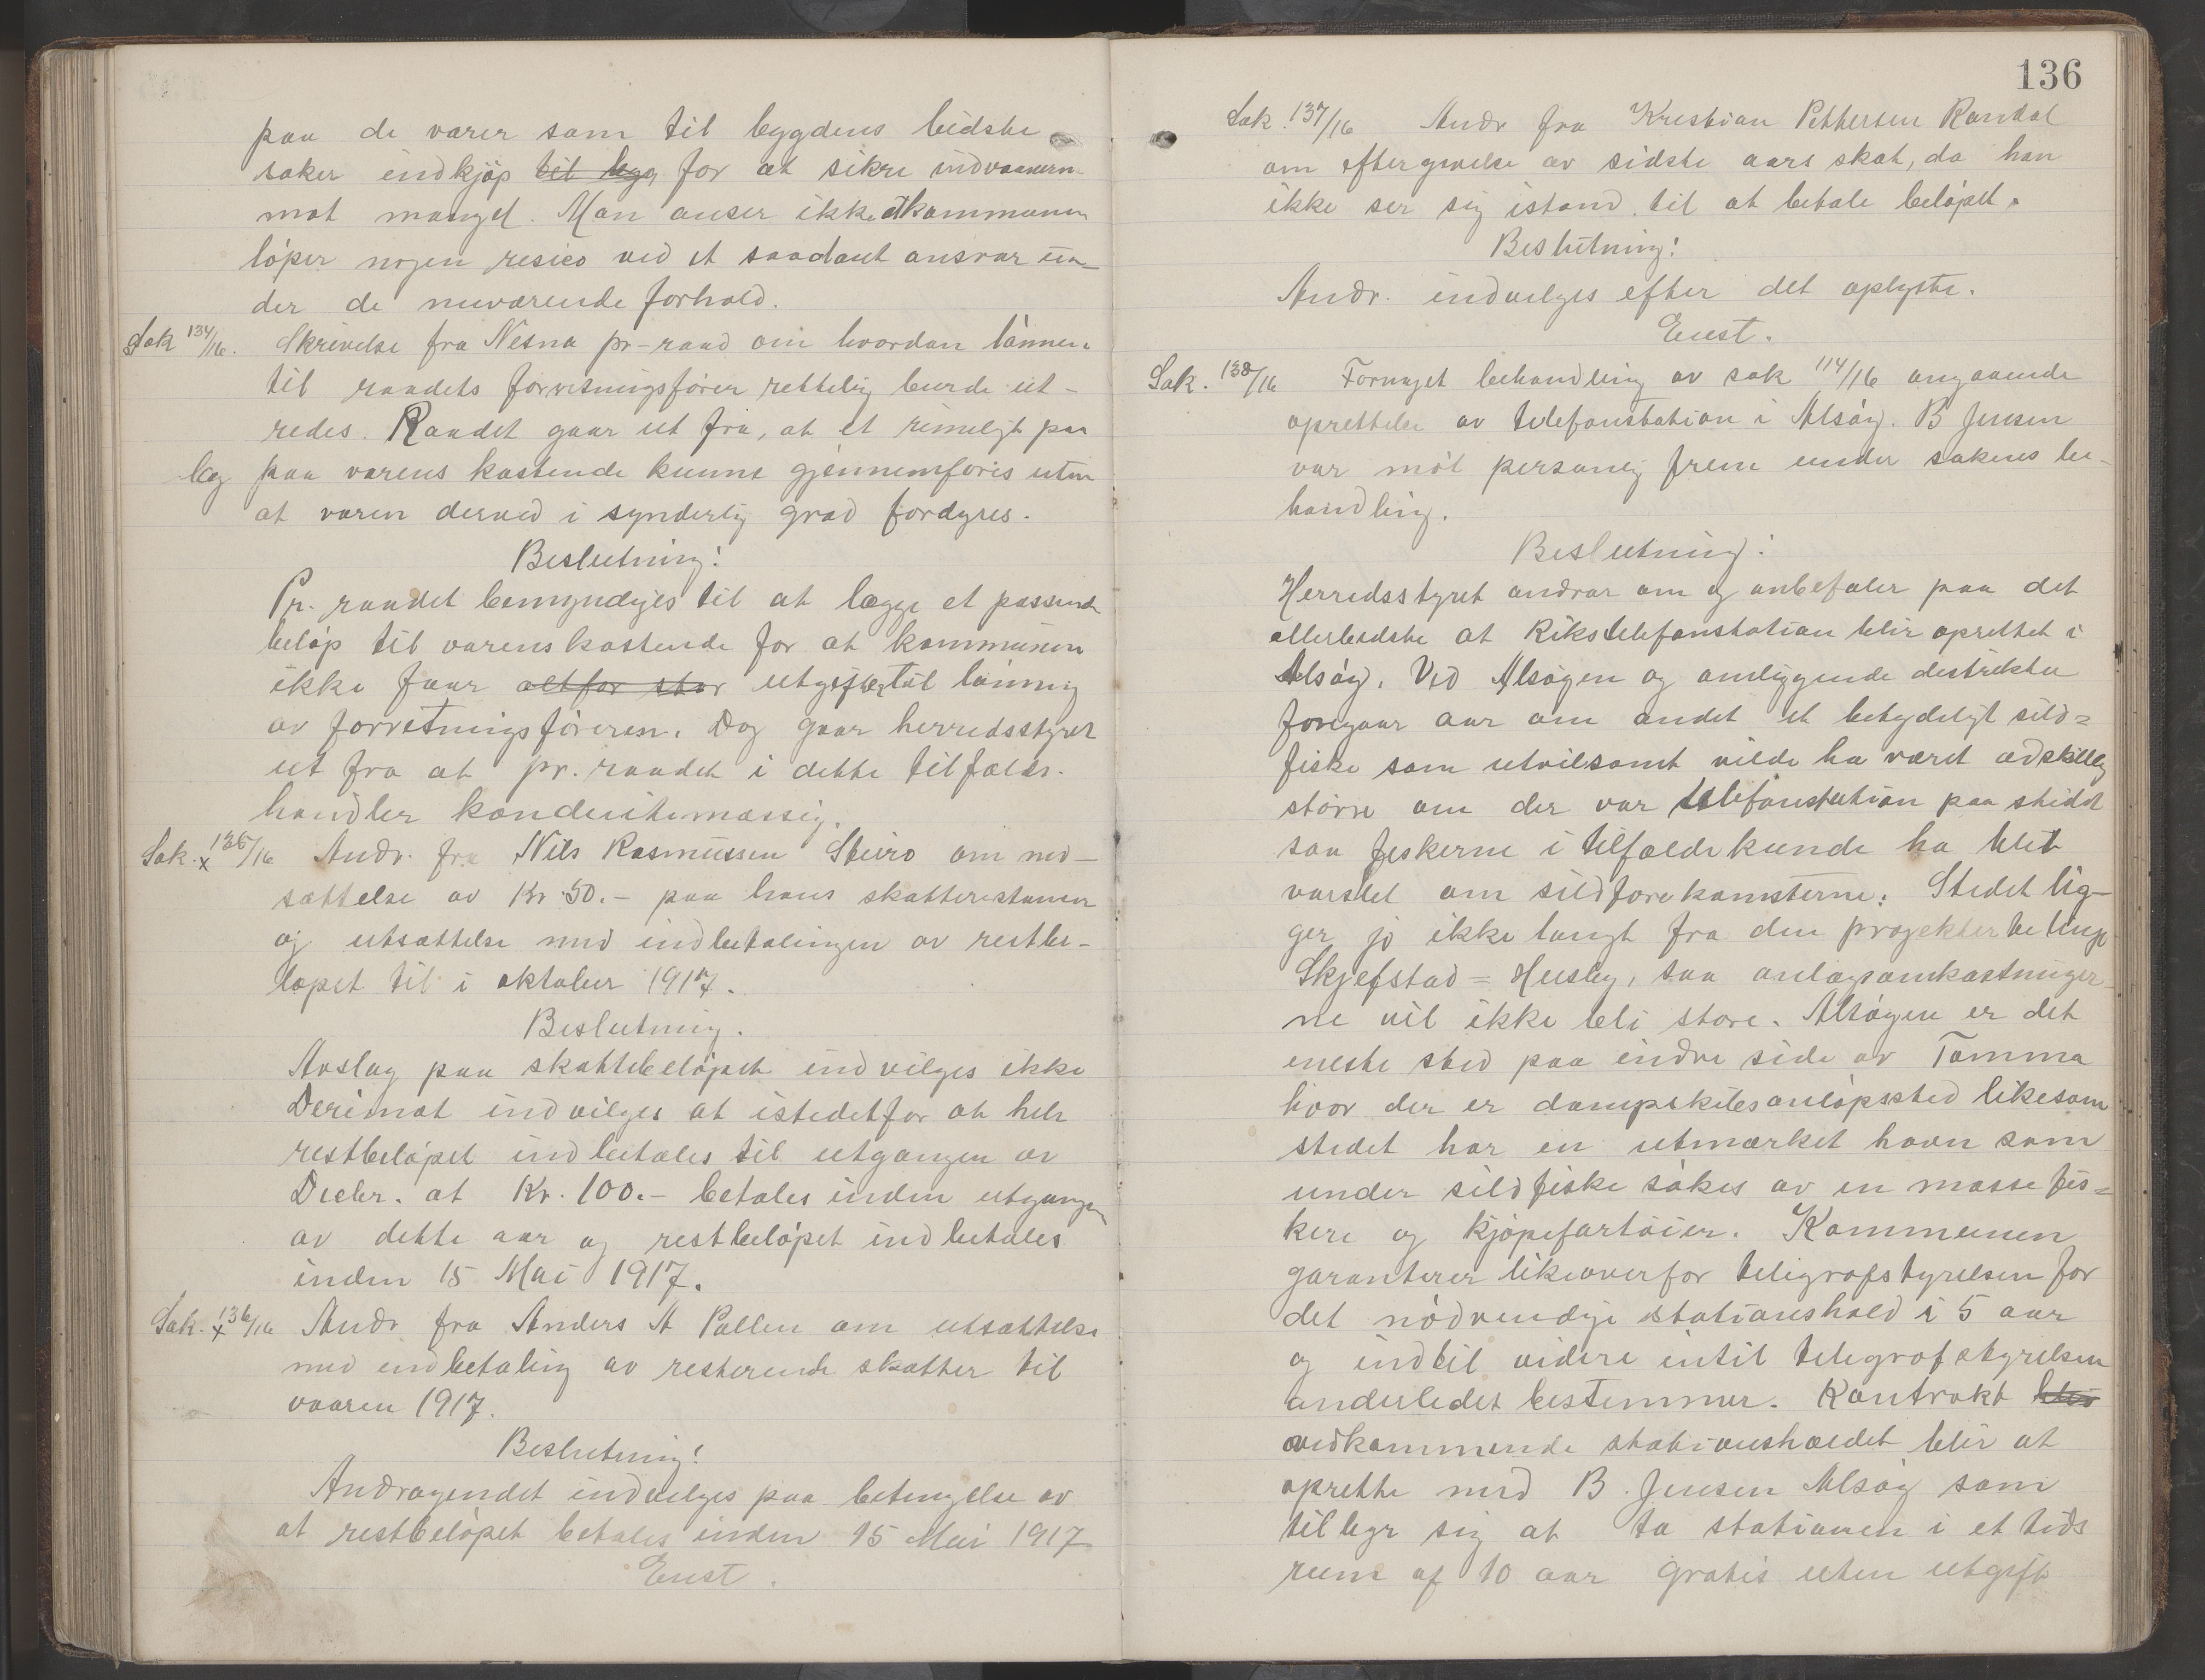 paa de varer som til bygdens bedste
søker indkjøp til byg for at sikre indvaanern
mot mangel. Man anser ikke at kommunen
løper nogen resico ved et saadant ansvar un-
der de nuværende forhold.
Sak 134/16. Skrivelse fra Nesna pr-raad om hvordan lønnen
til raadets forretningsfører rettelig burde ut-
redes. Raadet gaar ut fra, at et rimeligt paa
læg paa varens kostende kunne gjennemføres uten
at varen derved i synderlig grad fordyres.
Beslutning:
Pr. raadet bemyndiges til at lægge et passende
beløp til varens kostende for at kommunen
ikke faar altfor stor utgifter til lønning
av forretningsføreren. Dog gaar herredsstyret
ut fra at pr. raadet i dette tilfælde
handler konduitemæssig.
Sak. x 135/16 Andr. fra Nils Rasmussen Sturo om ned-
sættelse av Kr 50.- paa hans skatterestanser
og utsættelse med indbetalingen av restbe-
løpet til i oktober 1917.
Beslutning.
Avslag paa skattebeløpet indvilges ikke
Derimot indvilges at istedetfor at hele
restbeløpet indbetales til utgangen av
Decbr. at Kr. 100.- betales inden utgangen
av dette aar og restbeløpet indbetales
inden 15 Mai 1917.
Sak. x 136/16 Andr fra Anders A Pallen om utsættelse
med indbetaling av resterende skatter til
vaaren 1917.
Beslutning:
Andragendet indvilges paa betingelse av
at restbeløpet betales inden 15 Mai 1917
Enst.
136
Sak. 137/16 Andr fra Kristian Pettersen Randal
om eftergivelse av sidste aars skat, da han
ikke ser sig istand til at betale beløpet.
Beslutning:
Andr. indvilges efter det oplyste.
Enst.
Sak. 138/16 Fornyet behandling av sak 114/16 angaaende
oprettelse av telefonstation i Alsøg. B Jensen
var møt personlig frem under sakens be-
handling.
Beslutning:
Herredsstyret andrar om og anbefaler paa det
allerbedste at Rikstelefonstation blir oprettet i
Alsøg. Ved Alsøgen og omliggende destrikter
foregaar aar om andet et betydeligt sild=
fiske som utvilsomt vilde ha været adskillig
større om der var telefonstation paa stedet
saa fiskerne i tilfælde kunde ha blit
varslet om sildforekomsterne. Stedet lig-
ger jo ikke langt fra den projekterte linje
Skjefstad = Husby, saa anlægsomkostninger-
ne vil ikke bli store. Alsøgen er det
eneste sted paa indre side av Tomma
hvor der er dampskibsanløpssted likesom
stedet har en utmærket havn som
under sildfiske søkes av en masse fis=
kere og kjøpefartøier. Kommunen
garanterer likeoverfor telegrafstyrelsen for
det nødvendige stationshold i 5 aar
og indtil videre intil telegrafstyrelsen
anderledes bestemmer. Kontrakt blir
vedkommende stationsholdet blir at
oprette med B. Jensen Alsøg som
tilbyr sig at ta stationen i et tids
rum af 10 aar gratis uten utgift